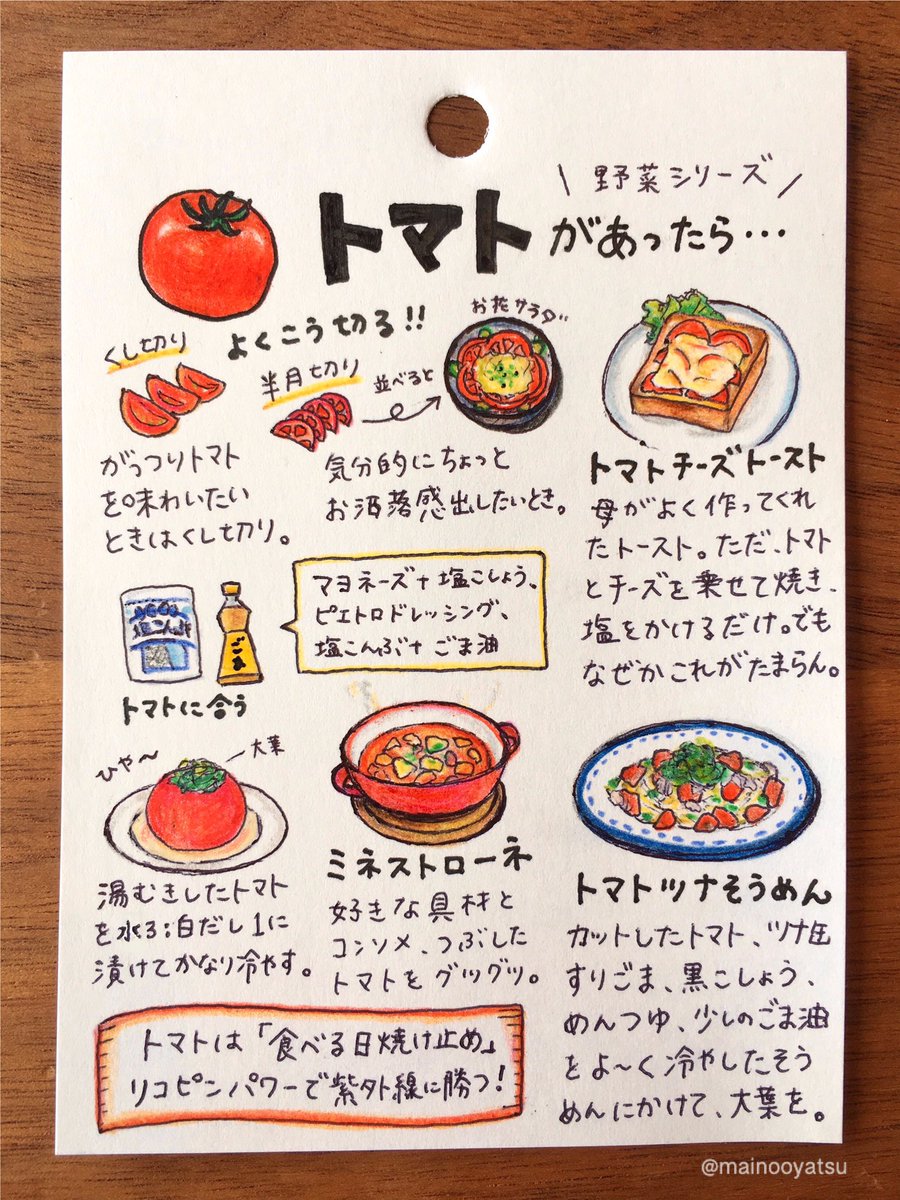 \ 野菜シリーズ /
トマトがあったら…
よくこう切る!!
くし切り
がっつりトマト
を味わいたい
ときはくし切り。
半月切り
並べると
お花サラダ
気分的にちょっと
お洒落感出したいとき。
トマトチーズトースト
母がよく作ってくれ
たトースト。ただ、トマト
とチーズを乗せて焼き、
塩をかけるだけ。でも
なぜかこれがたまらん。
塩こんぶ
ごま
トマトに合う
マヨネーズ+塩こしょう、
ピエトロドレッシング、
塩こんぶ+ごま油
ひや〜
大葉
湯むきしたトマト
を水3:白だし1に
漬けてかなり冷やす。
ミネストローネ
好きな具材と
コンソメ、つぶした
トマトをグツグツ。
トマトツナそうめん
カットしたトマト、ツナ缶
すりごま、黒こしょう、
めんつゆ、少しのごま油
とよ〜く冷やしたそう
めんにかけて、大葉を。
トマトは「食べる日焼け止め」
リコピンパワーで紫外線に勝つ!
@mainooyatsu